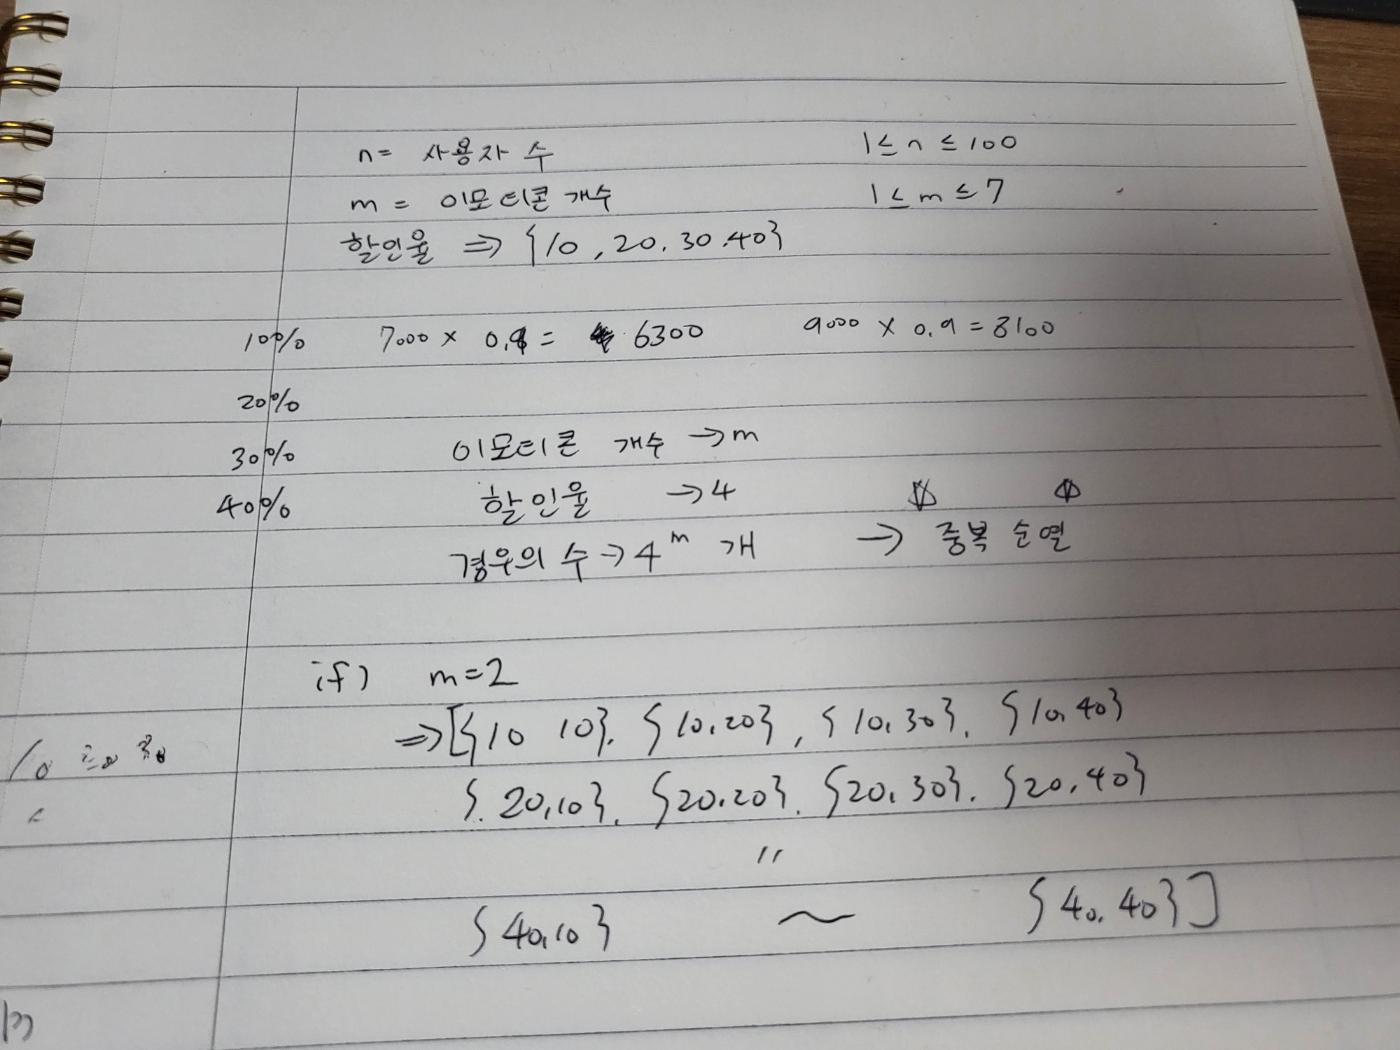 n= 사용자 수 1≤n≤100
m = 이모티콘 개수 1≤m≤7
할인율 ⇒ {10, 20. 30. 40}
10% 7000 × 0.9 = 6300 9000 × 0.9 = 8100
20%
30% 이모티콘 개수 → m
40% 할인율 → 4
경우의 수 → 4^m 개 → 중복 순열
if) m=2
⇒[{10 10}. {10.20}, {10.30}. {10.40}
{. 20,10}. {20.20}. {20.30}. {20.40}
"
{40,10} ~ {40.40}]